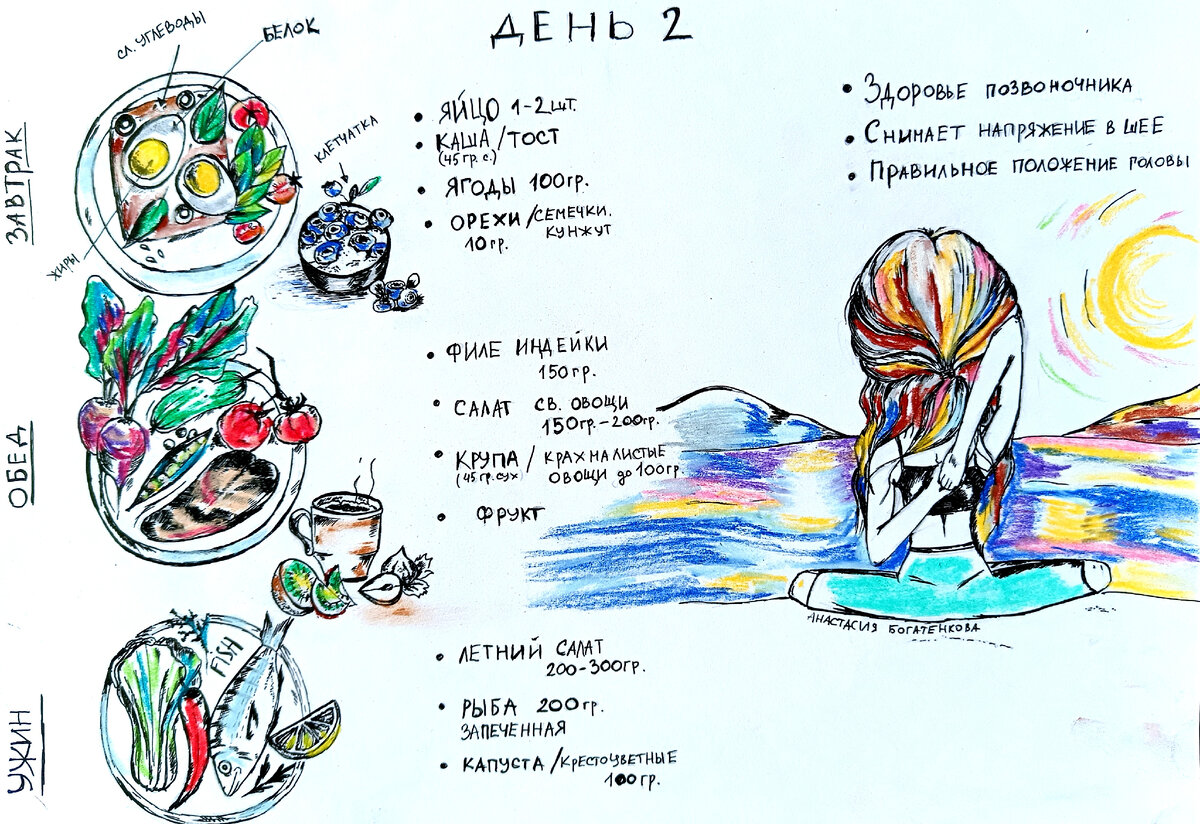 ДЕНЬ 2
ЗАВТРАК
СЛ. УГЛЕВОДЫ
БЕЛОК
КЛЕТЧАТКА
ЖИРЫ
• ЯЙЦО 1-2 ШТ.
• КАША / ТОСТ
(45 ГР. С.)
• ЯГОДЫ 100 ГР.
• ОРЕХИ / СЕМЕЧКИ.
10 ГР. КУНЖУТ
• ЗДОРОВЬЕ ПОЗВОНОЧНИКА
• СНИМАЕТ НАПРЯЖЕНИЕ В ШЕЕ
• ПРАВИЛЬНОЕ ПОЛОЖЕНИЕ ГОЛОВЫ
ОБЕД
• ФИЛЕ ИНДЕЙКИ
150 ГР.
• САЛАТ СВ. ОВОЩИ
150 ГР. – 200 ГР.
• КРУПА / КРАХМАЛИСТЫЕ
(45 ГР. СУХ) ОВОЩИ ДО 100 ГР.
• ФРУКТ
АНАСТАСИЯ БОГАТЕНКОВА
УЖИН
FISH
• ЛЕТНИЙ САЛАТ
200-300 ГР.
• РЫБА 200 ГР.
ЗАПЕЧЕННАЯ
• КАПУСТА / КРЕСТОЦВЕТНЫЕ
100 ГР.